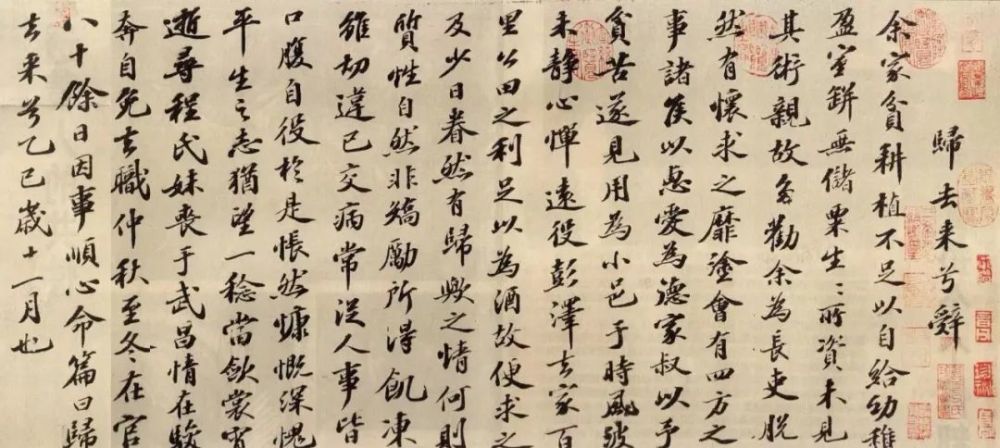 歸去来兮辭
余家貧耕植不足以自給幼稚
盈室缾無儲粟生〻所資未見
其術親故多勸余為長吏脱
然有懷求之靡塗會有四方之
事諸侯以惠愛為德家叔以予
貧苦遂見用為小邑于時風波
未静心憚遠役彭澤去家百
里公田之利足以為酒故便求之
及少日眷然有歸歟之情何則
質性自然非矯勵所得飢凍
雖切違己交病常從人事皆
口腹自役於是悵然慷慨深愧
平生之志猶望一稔當斂裳宵
逝尋程氏妹喪于武昌情在駿
奔自免去職仲秋至冬在官
八十餘日因事順心命篇曰歸
去来兮乙巳歲十一月也